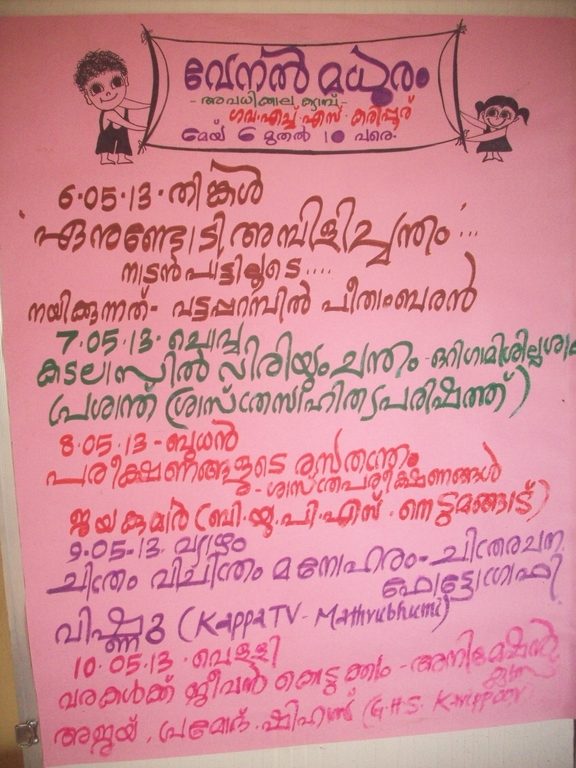 വേനൽ മധുരം
- അവധിക്കാല ക്യാമ്പ് -
ഗവ.എച്ച്.എസ്. കരിപ്പൂര്
മെയ് 6 മുതൽ 10 വരെ.
6.05.13. തിങ്കൾ
'ഏനുണ്ടോടീ അമ്പിളിച്ചന്തം'...
നാടൻപാട്ടിലൂടെ....
നയിക്കുന്നത്- വട്ടപ്പറമ്പിൽ പീതാംബരൻ
7.05.13. ചൊവ്വ
കടലാസിൽ വിരിയും ചന്തം - ഒറിഗാമിശില്പശാല
പ്രശാന്ത് (ശാസ്ത്രസാഹിത്യപരിഷത്ത്)
8.05.13 - ബുധൻ
പരീക്ഷണങ്ങളുടെ രസതന്ത്രം
- ശാസ്ത്രപരീക്ഷണങ്ങൾ
ജയകുമാർ (ബി.യു.പി.എസ്. നെടുമങ്ങാട്)
9.05-13. വ്യാഴം
ചിത്രം വിചിത്രം മനോഹരം - ചിത്രരചന
ഫോട്ടോഗ്രാഫി
വിഷ്ണു (Kappa TV - Mathrubhumi)
10.05.13. വെള്ളി
വരകൾക്ക് ജീവൻ കൊടുക്കാം - അനിമേഷൻ
ക്ലാസ്
അജയ്, പ്രമോദ്. ഷിഹാസ് (G.H.S. Karippoor